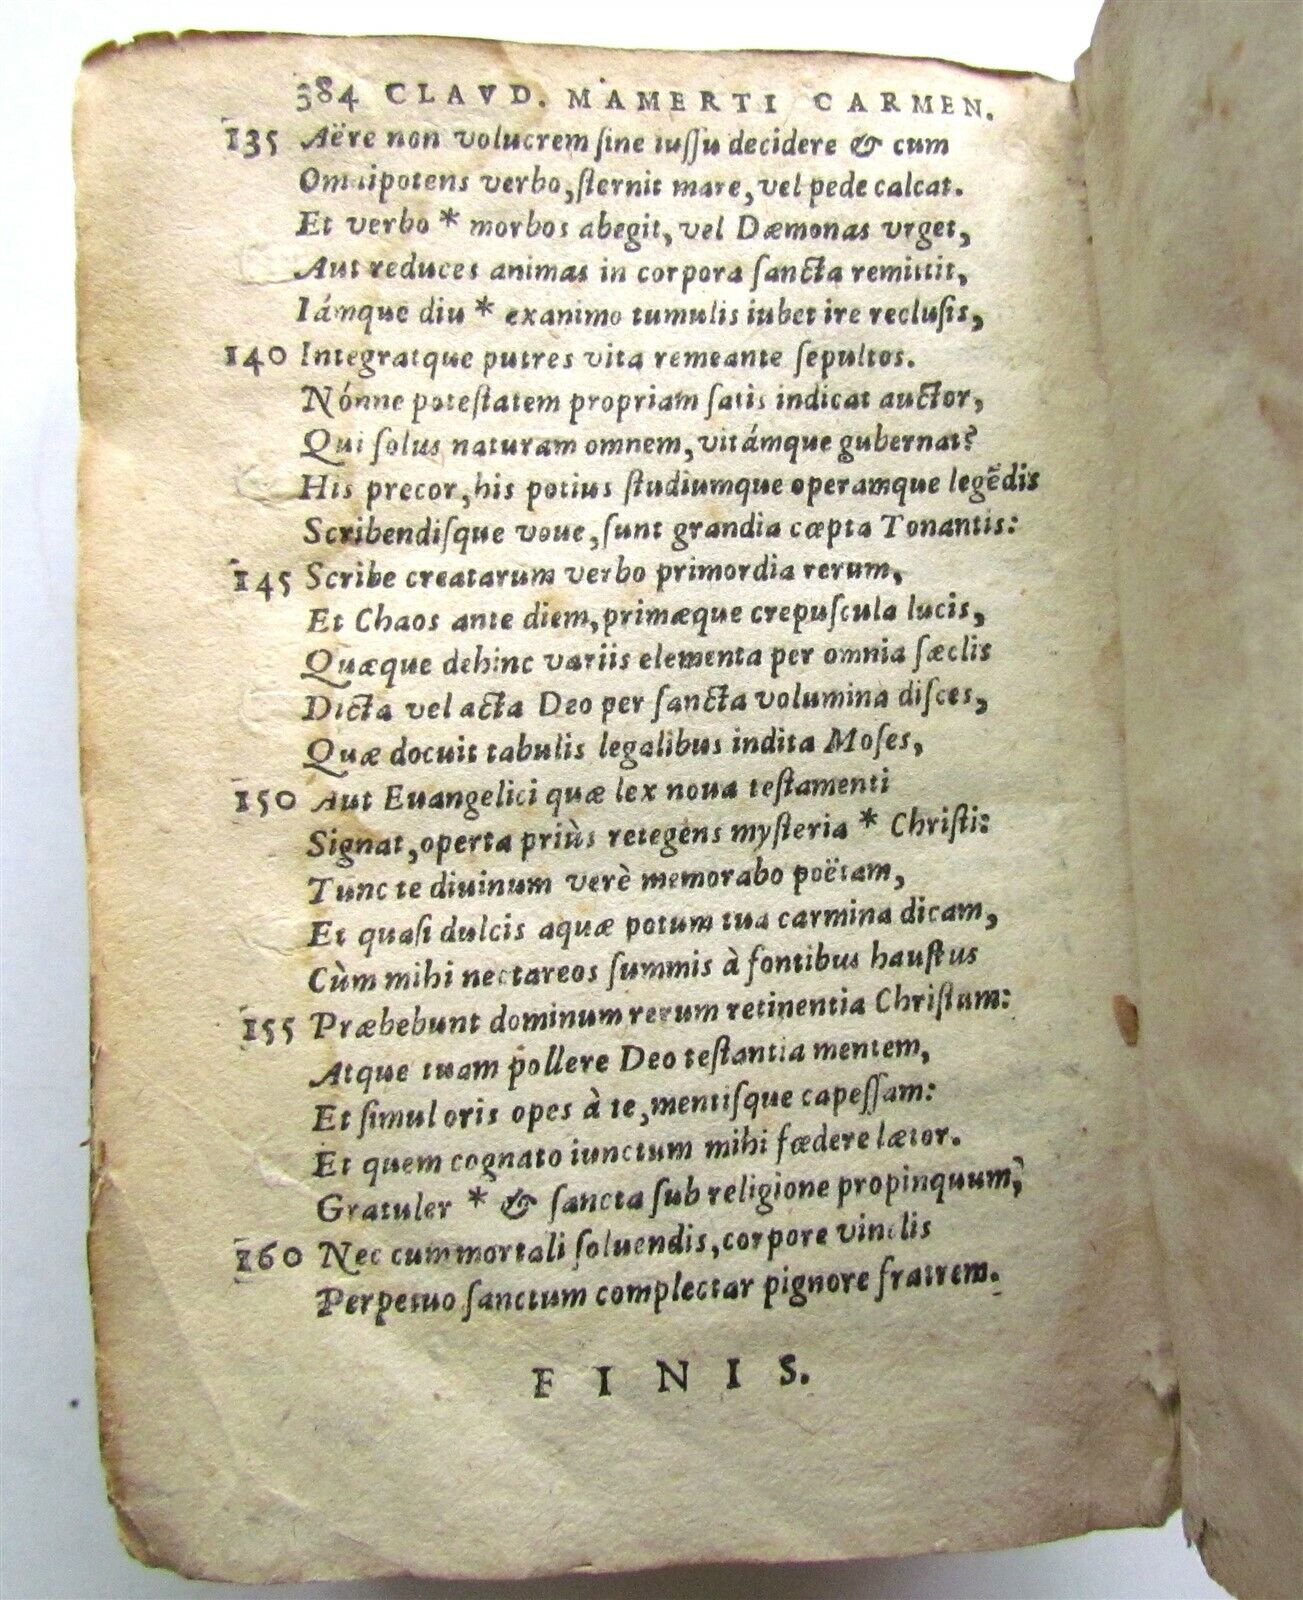 384 CLAVD. MAMERTI CARMEN.
135 Aëre non volucrem ſine iuſſu decidere & cum
Omnipotens verbo, ſternit mare, vel pede calcat.
Et verbo * morbos abegit, vel Dæmonas vrget,
Aut reduces animas in corpora ſancta remittit,
Iámque diu * exanimo tumulis iubet ire recluſis,
140 Integratque putres vita remeante ſepultos.
Nónne poteſtatem propriam ſatis indicat auctor,
Qui ſolus naturam omnem, vitámque gubernat?
His precor, his potius ſtudiumque operamque legẽdis
Scribendiſque voue, ſunt grandia cœpta Tonantis:
145 Scribe creatarum verbo primordia rerum,
Et Chaos ante diem, primæque crepuſcula lucis,
Quæque dehinc variis elementa per omnia ſæclis
Dicta vel acta Deo per ſancta volumina diſces,
Quæ docuit tabulis legalibus indita Moſes,
150 Aut Euangelici quæ lex noua teſtamenti
Signat, operta priùs retegens myſteria * Chriſti:
Tunc te diuinum verè memorabo poëtam,
Et quaſi dulcis aquæ potum tua carmina dicam,
Cùm mihi nectareos ſummis à fontibus hauſtus
155 Præbebunt dominum rerum retinentia Chriſtum:
Atque tuam pollere Deo teſtantia mentem,
Et ſimul oris opes à te, mentiſque capeſſam:
Et quem cognato iunctum mihi fœdere lætor.
Gratuler * & ſancta ſub religione propinquum,
160 Nec cum mortali ſoluendis, corpore vinclis
Perpetuo ſanctum complectar pignore fratrem.
FINIS.